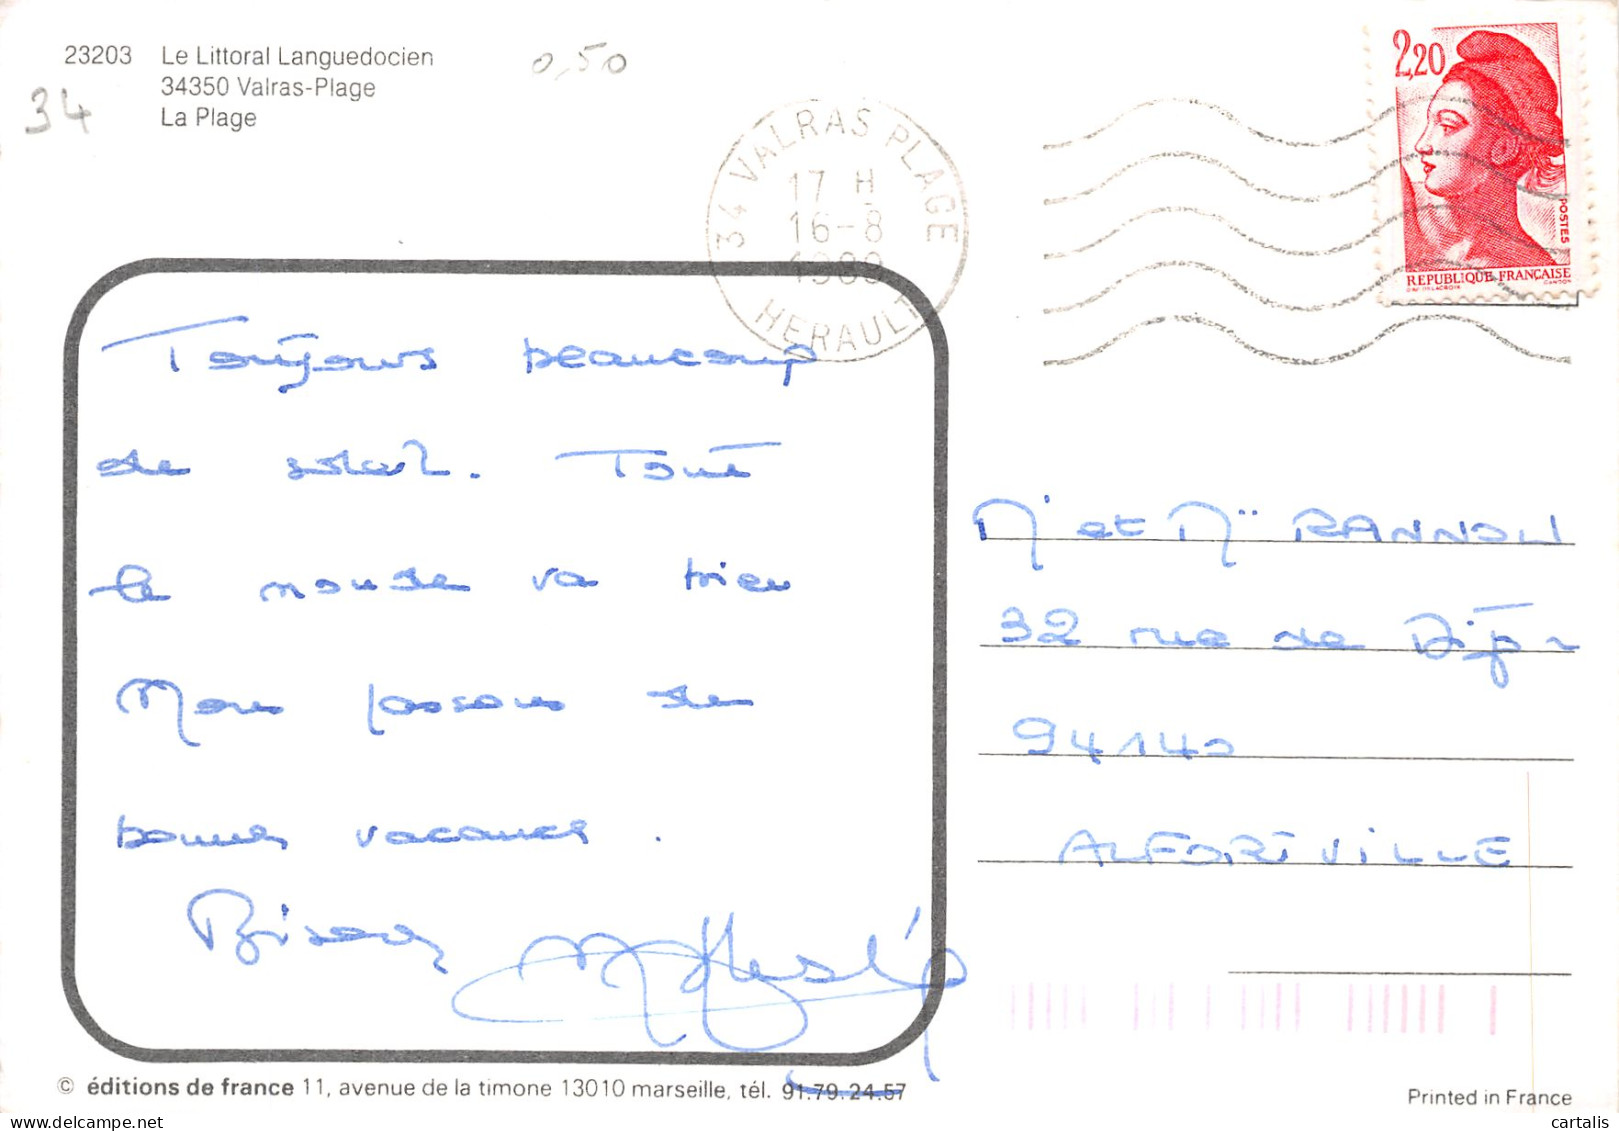 23203 Le Littoral Languedocien
34350 Valras-Plage
La Plage
34
0,50
34 VALRAS PLAGE
17 H
16-8
HERAULT
2,20
POSTES
REPUBLIQUE FRANÇAISE
Toujours beaucoup
de soleil. Tout
le monde va bien
Nous passons de
bonnes vacances.
Bisous
Mr et Mme RANNOU
32 rue de Dijon
94140
ALFORTVILLE
© éditions de france 11, avenue de la timone 13010 marseille, tél. 91.79.24.57
Printed in France
cartalis